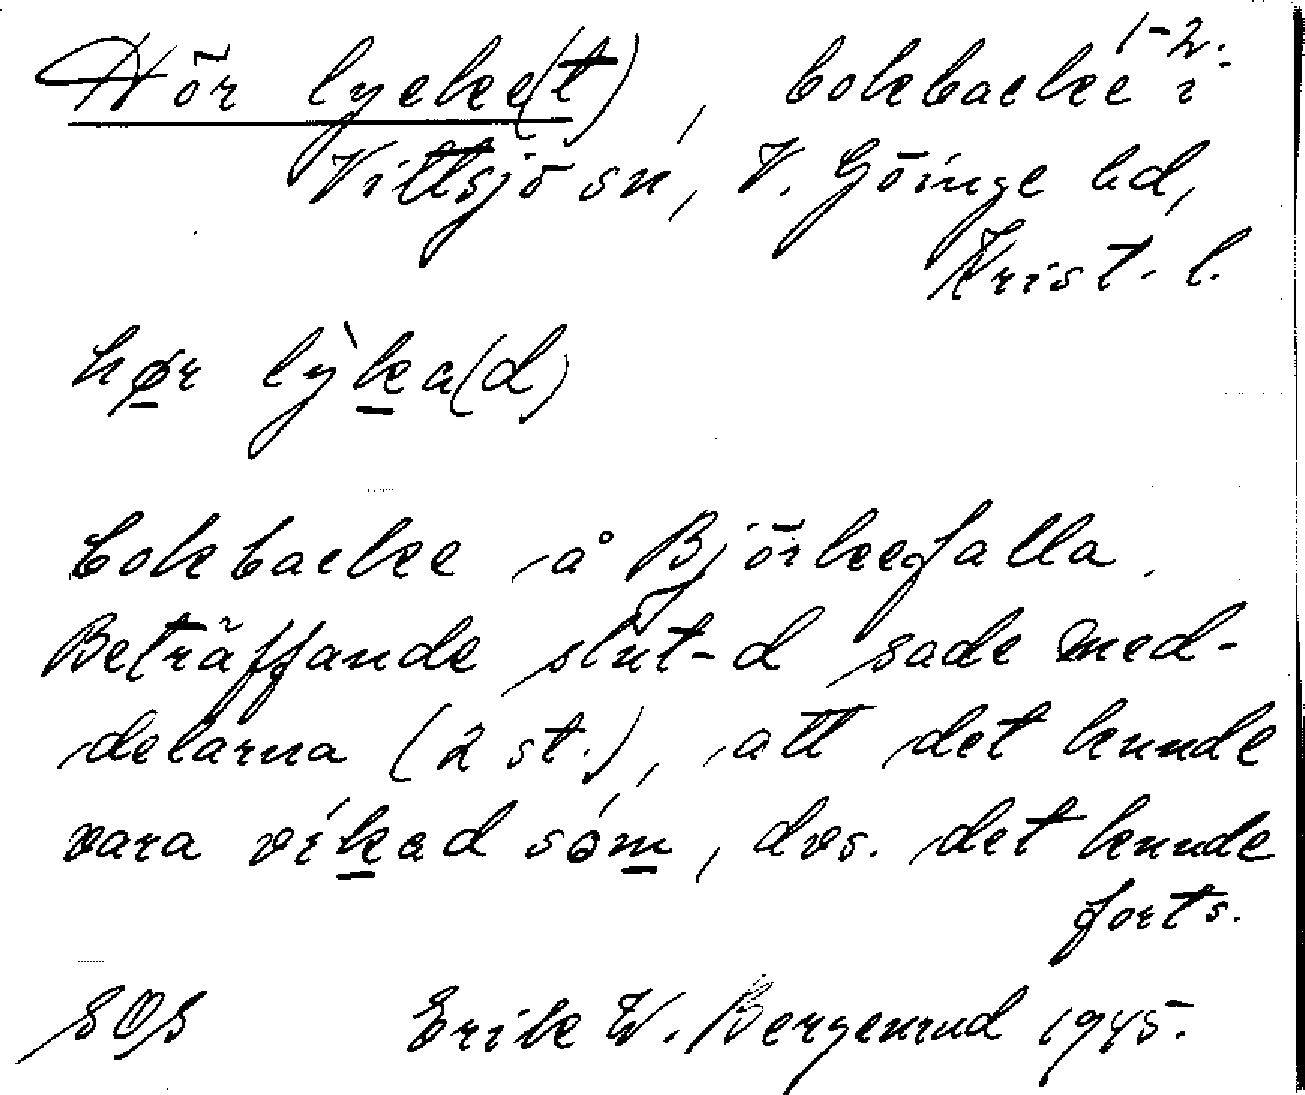 1-2.
Hör lycke(t), bokbacke i
Vittsjö sn, V. Göinge hd,
Krist. l.
hør lỳka(d)
bokbacke å Björkefalla.
Beträffande slut-d sade med-
delarna (2 st.), att det kunde
vara víkad sóm, dvs. det kunde
forts.
SOS Erik W. Bergenrud 1945.